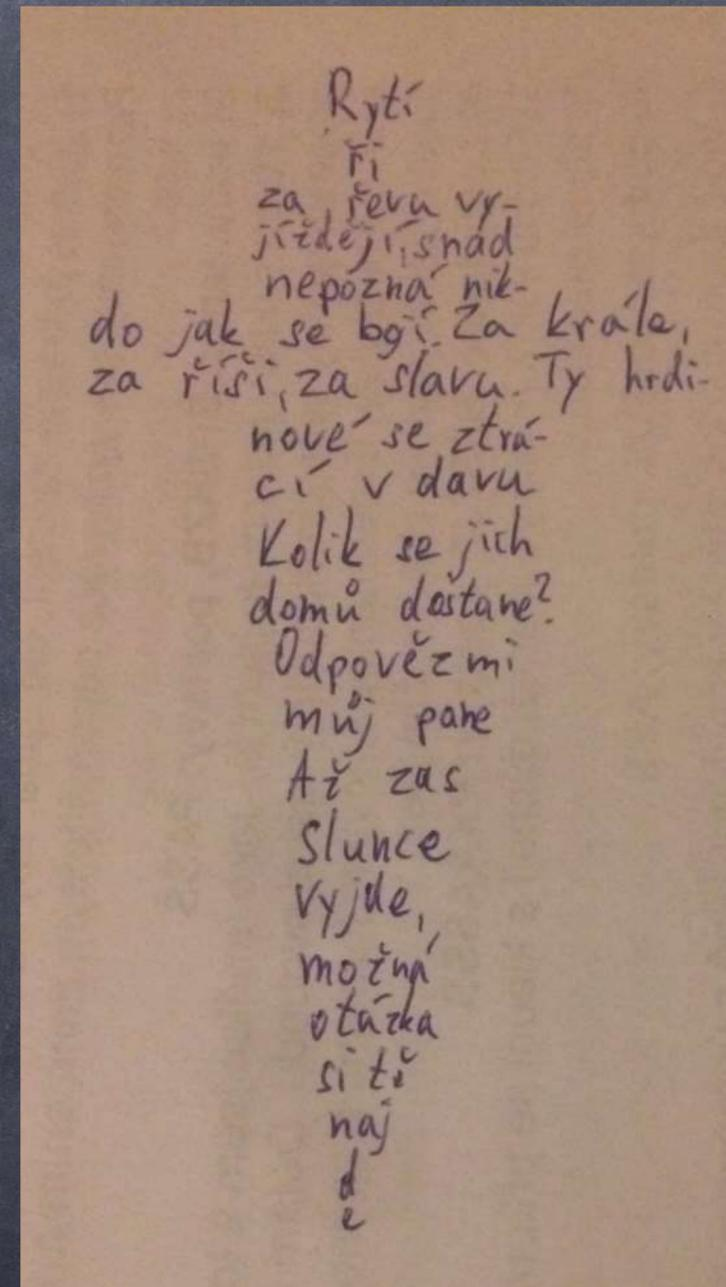 Rytí
ři
za řevu vy-
jíždějí, snad
nepozná nik-
do jak se bojí. Za krále,
za říši, za slávu. Ty hrdi-
nové se ztrá-
cí v davu
Kolik se jich
domů dostane?
Odpověz mi
můj pane
Až zas
slunce
vyjde,
možná
otázka
si tě
naj
d
e